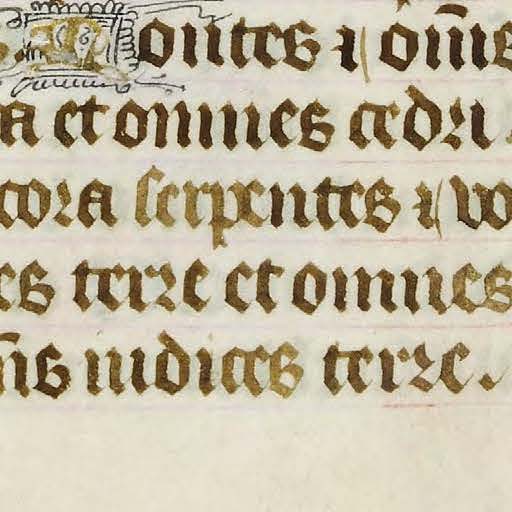 Montes ⁊ om̅es
a et omnes cedri.
cora serpentes ⁊ vo
es terre et omnes
m̅s iudices terre.